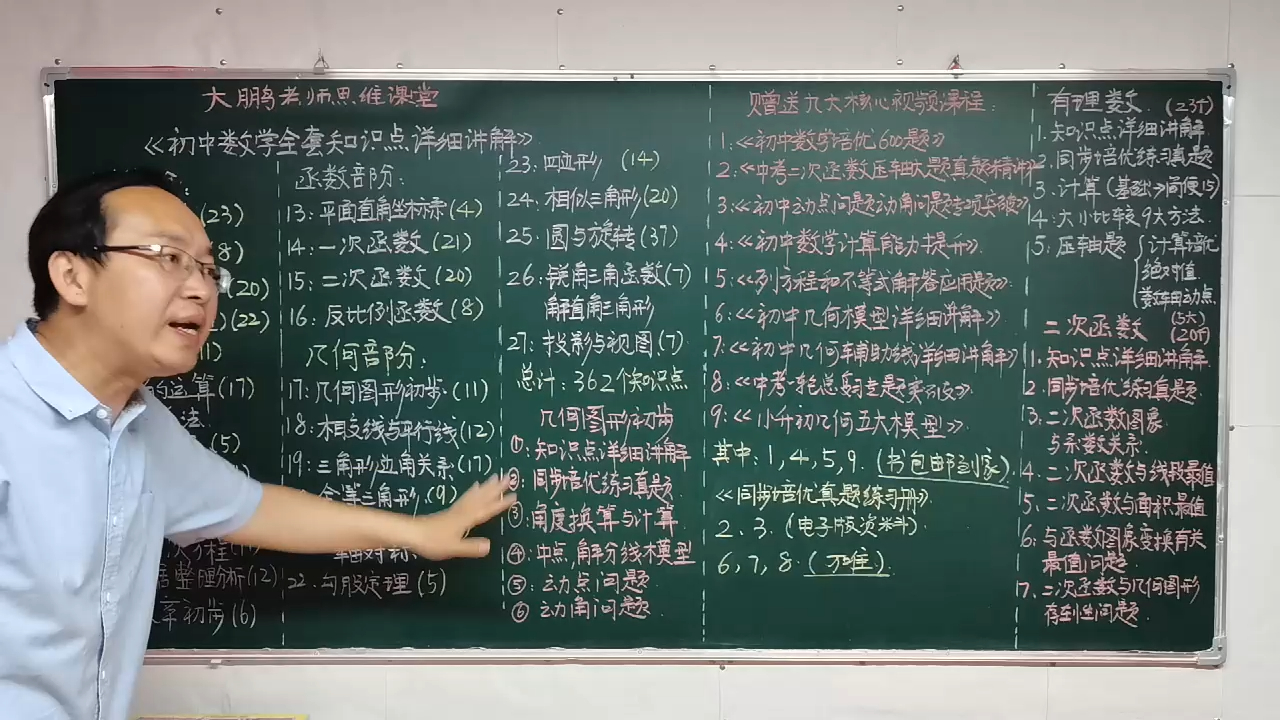 大鹏老师思维课堂
《初中数学全套知识点详细讲解》
(23)
8)
(20)
(22)
11)
的运算(17)
法
(5)
次方程
整理分析(12)
率初步(6)
函数部分:
13:平面直角坐标系(4)
14:一次函数(21)
15:二次函数(20)
16:反比例函数(8)
几何部分:
17:几何图形初步(11)
18:相交线与平行线(12)
19:三角形边角关系(17)
全等三角形(9)
轴对称
22.勾股定理(5)
23:四边形 (14)
24.相似三角形(20)
25.圆与旋转(37)
26:锐角三角函数(7)
解直角三角形
27:投影与视图(7)
总计:362个知识点
几何图形初步
①:知识点详细讲解
②:同步培优练习真题
③:角度换算与计算
④:中点,角分线木模型
⑤:动点问题
⑥:动角问题
赠送九大核心视频课程:
1.《初中数学培优600题》
2:《中考二次函数压轴大题真题精讲》
3:《初中动点问题动角问题专项突破》
4:《初中数学计算能力提升》
5:《列方程和不等式解答应用题》
6:《初中几何模型详细讲解》
7:《初中几何辅助线详细讲解》
8:《中考一轮总复习专题突破》
9:《小升初几何五大模型》
其中:1,4,5,9.(书包邮到家)
《同步培优真题练习册》
2、3.(电子版资料)
6,7,8.
有理数.(23个)
1.知识点详细讲解
2.同步培优练习真题
3.计算(基础→简便15)
4.大小比较9大方法
5.压轴题
计算培优
绝对值
数轴动点
(5大)
二次函数 (20个)
1.知识点详细讲解
2.同步培优练习真题
3:二次函数图象
与系数关系
4.二次函数与线段最值
5.二次函数与面积最值
6:与函数图象变换有关
最值问题
7.二次函数与几何图形
存在性问题